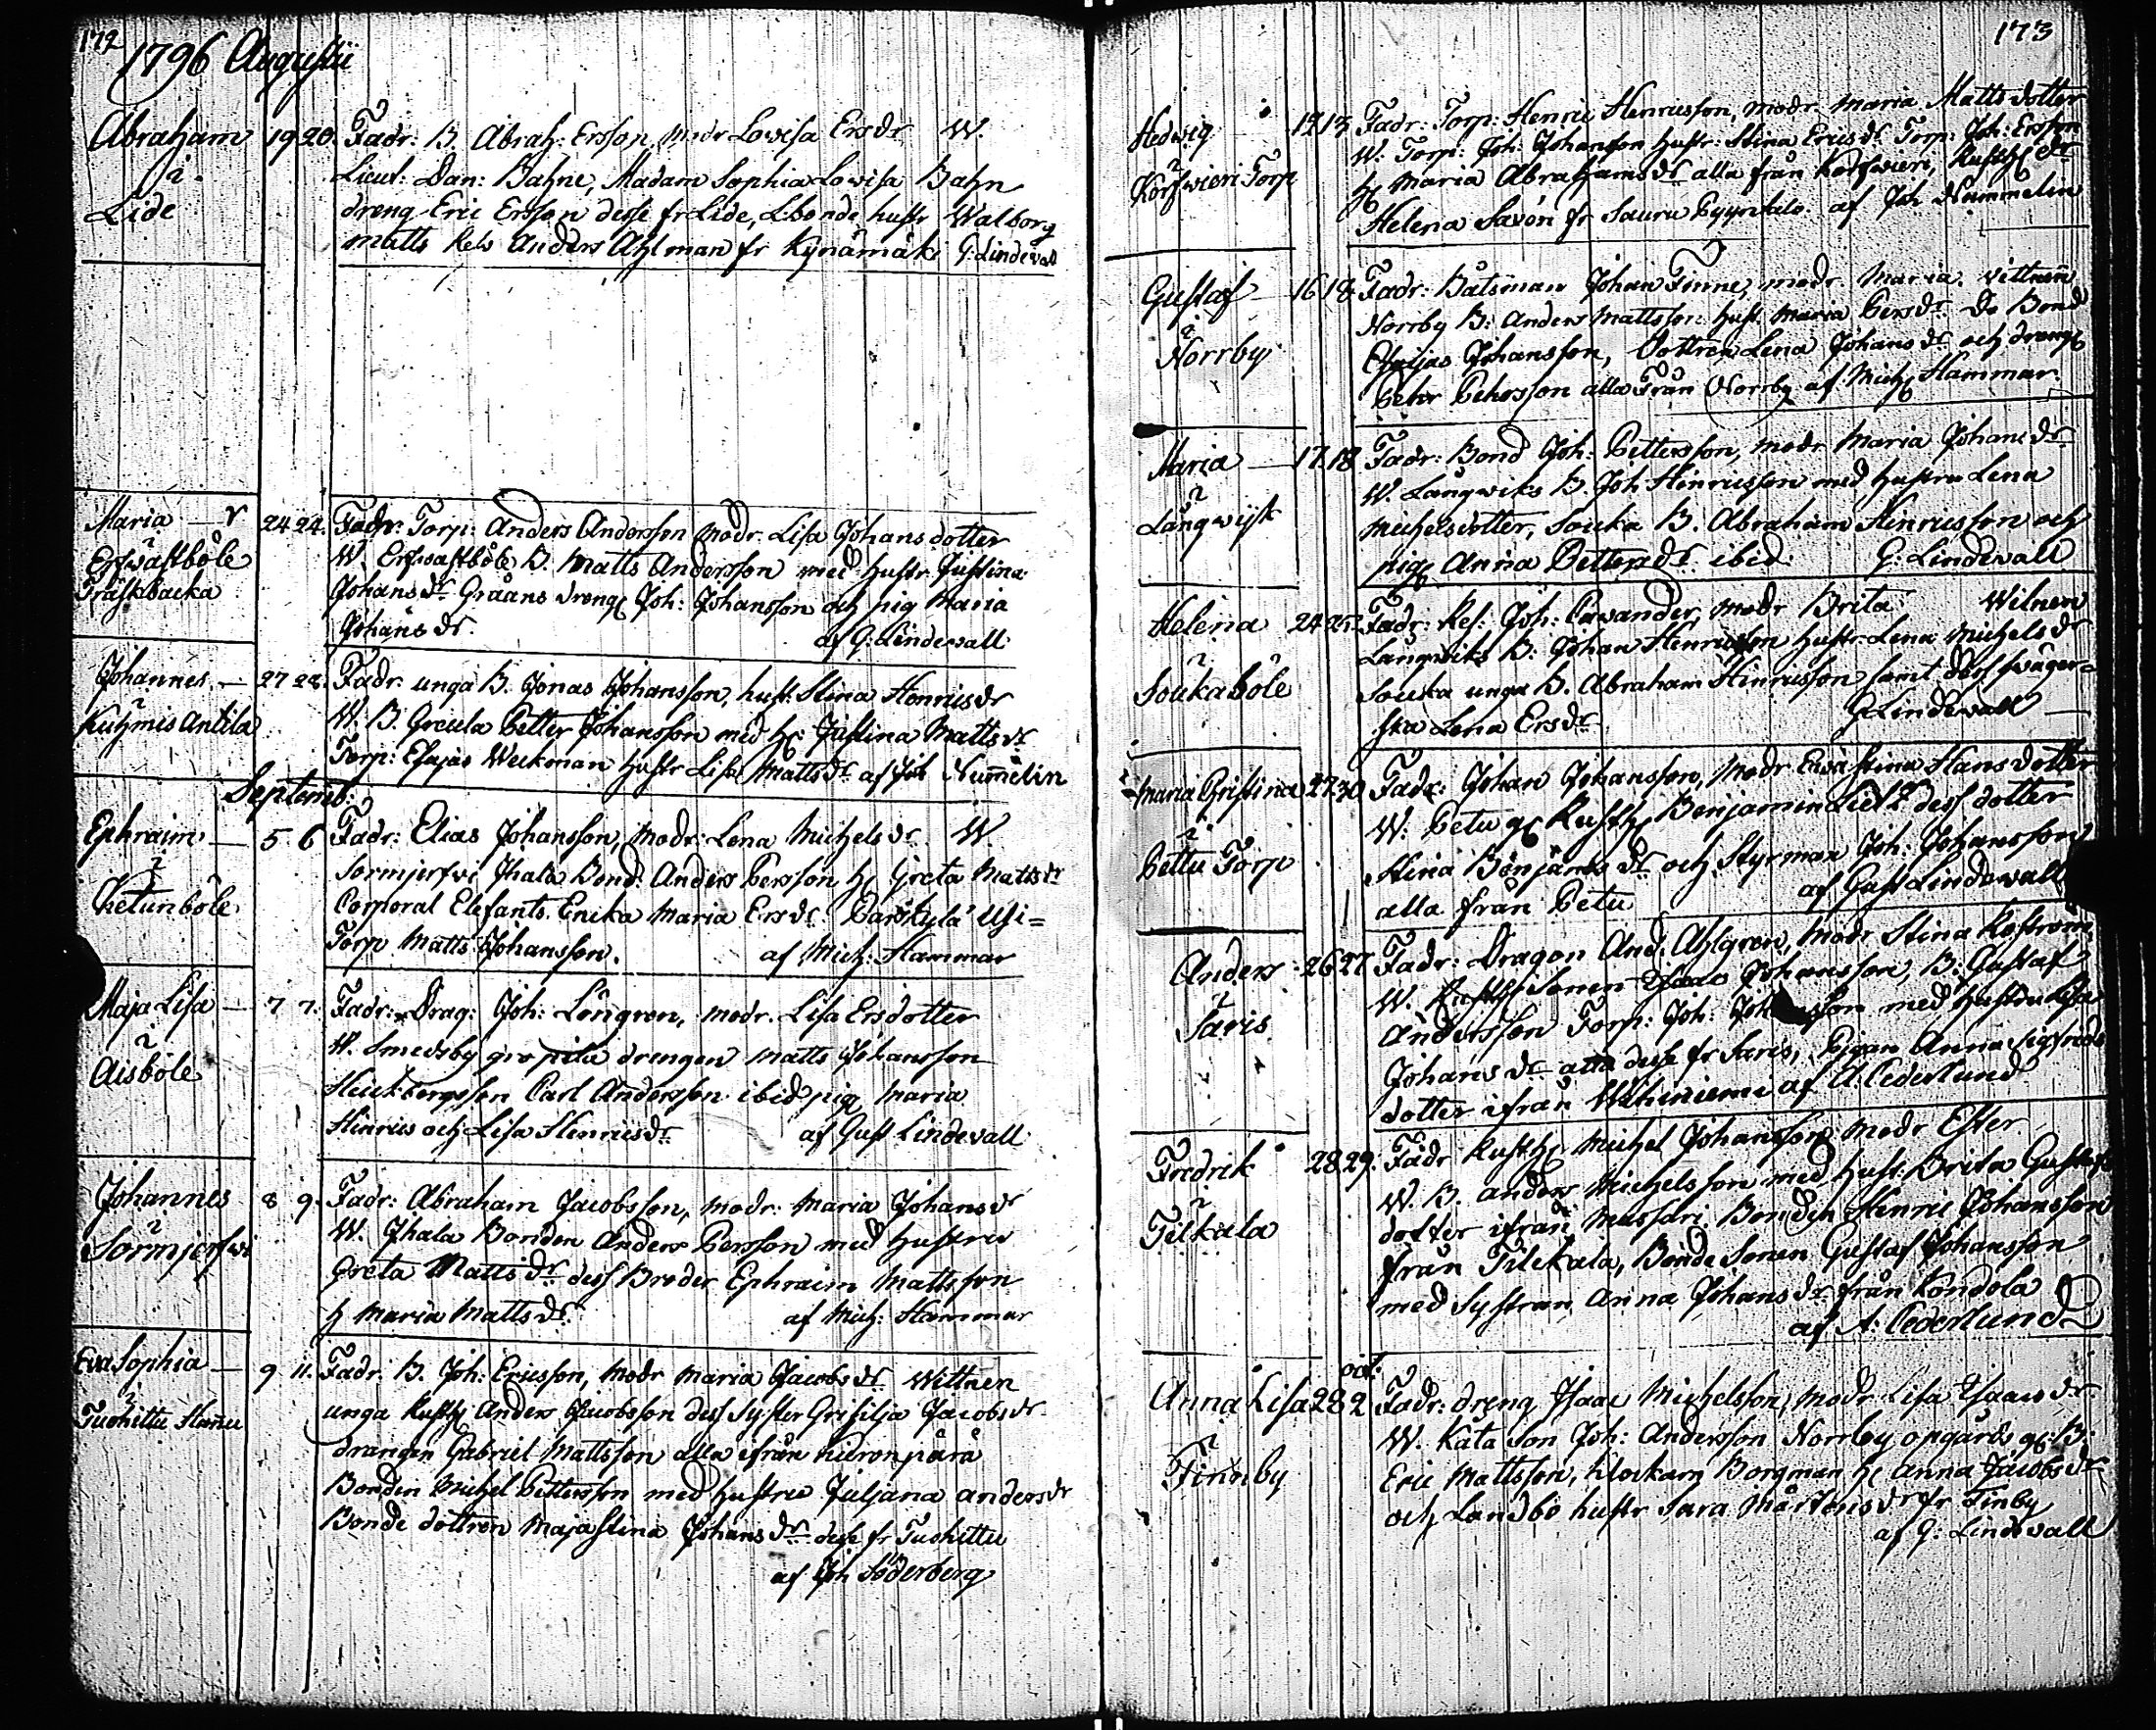 172
1796 Augustii
Abraham 19 20. Fadr: B. Abrah: Ersson, modr Lovisa Ersdr W.
i Lieut: Dan: Bahne, Madam Sophia Lovisa Bahn
Lide dreng Eric Ersson desse fr Lide, hustr Walborg
Matts Anders Ahlman fr Kynämäki G: Lindevall
Maria 24 24. Fadr. Torp: Anders Andersson modr. Lisa Johansdotter
Erfwastböle W. Erfwastböle B. Matts Andersson med hustr Justina
Träskbacka Johansdr Gråans dreng Joh: Johansson och pig Maria
Johansdr. af G: Lindevall
Johannes — 27 28. Fadr. unga B. Jonas Johansson, hustr Stina Henricsdr
Kuhmis Antila W. B. Petter Johansson med h: Justina Mattsdr
Torp: Esajas Weckman hustr Lisa Mattsdr af Joh Numelin
Septemb:
Ephraim — 5 6 Fadr: Elias Johansson, modr: Lena Michelsdr. W
i Sormjerfvi Jhala Bond: Anders Persson h: Greta Mattsdr
Ketunböle Corporal Elefants Enka Maria Ersdr.
Torp Matts Johansson. af Mich: Hammar
Maja Lisa — 7 7. Fadr: Drag: Joh: Löngren, modr. Lisa Ersdotter
i W. Smedsby drengen Matts Johansson
Aisböle Carl Andersson ibid pig Maria
Hinrics och Lisa Henricsdr. af Gust Lindevall
Johannes 8 9. Fadr: Abraham Jacobsson, modr: Maria Johansdr
i W. Jhala Bonden Anders Persson med hustru
Sormjerfwi Greta Mattsdr dess Broder Ephraim Mattsson
h Maria Mattsdr. af Mich: Hammar
Eva Sophia — 9 11. Fadr. B. Joh: Ericsson, modr Maria Jacobsdr Wittnen
i unga Rusth: Anders Jacobsson dess Syster Jacobsdr
Tuohittu drängen Gabriel Mattsson alla ifrån
Bonden Michel Pettersson med hustru Juljana Andersdr
Bonde dottren Maja Stina Johansdr desse fr Tuohittu
af Joh Söderberg
173
Hedwig 12 13 Fadr: Torp: Henric Henricsson, modr: Maria Mattsdotter
i W: Torp: Joh: Johansson hustr: Stina Ericsdr Torp: Joh: Ersson
Korfwieri Torp h: Maria Abrahamsdr alla från Korfwieri,
Helena Savón fr af Joh Nummelin
Gustaf — 16 18 Fadr: Båtsman Johan Finne, modr Maria. Vittnen
i Norrby B: Anders Mattsson hust: Maria Persdr Do Bond
Norrby Esaijas Johansson, Dottren Lena Johansdr och dreng
Pehr Pehrsson alla Från Norrby af Mich: Hammar
Maria — 17 18 Fadr: Bond Joh: Pettersson, modr Maria Johansdr
i W. Långwiks B. Joh Hinricsson med hustru Lena
Långwijk Michelsdotter, Souka B. Abraham Hinricsson och
pig Anna Pettersdr. ibid. G: Lindevall
Helena 24 25. Fadr: Joh: Pavander, modr Brita Witnen
i Långwiks B: Johan Henricsson hustr: Lena Michelsdr
Soukaböle Souka unga B. Abraham Hinricsson samt dess swäger=
ska Lena Ersdr. G Lindevall —
Maria Christina 27 30 Fadr: Johan Johansson, modr Ewa Stina Hansdotter
i W: Petu Rusth: Benjamin dess dotter
Pettu Torp Stina Benjamsdr och Styrman Joh: Johansson
alla från Petu af Gust Lindevall
Anders 26 27 Fadr: Dragon And: Ahlgren, modr Stina
i W. Rusth: Sonen Isaac Johansson, B: Gustaf
Saris Andersson Torp: Joh: Johansson med hustru Lisa
Johansdr alla desse fr Saris, Pigan Anna Sigfrids
dotter ifrån Wihiniemi af A: Cederlund
Fredrik 28 29. Fadr Rusth: Michel Johansson modr Ester
i W. B. Anders Michelsson med hust: Brita Gustafs
Tilkala dotter ifrån Bonden Henric Johansson
från Tilekala, Bonde Sonen Gustaf Johansson
med Systran Anna Johansdr från Kondola
af A: Cederlund
oct.
Anna Lisa 28 2 Fadr: dreng Isaac Michelsson, modr Lisa Isaacsdr
i W. Kata Son Joh: Andersson Norrby B:
Finnby Eric Mattsson, klockarn Borgman h: Anna Jacobsdr
och Landbo hustr Sara Mårtensdr fr Finby
af G: Lindevall